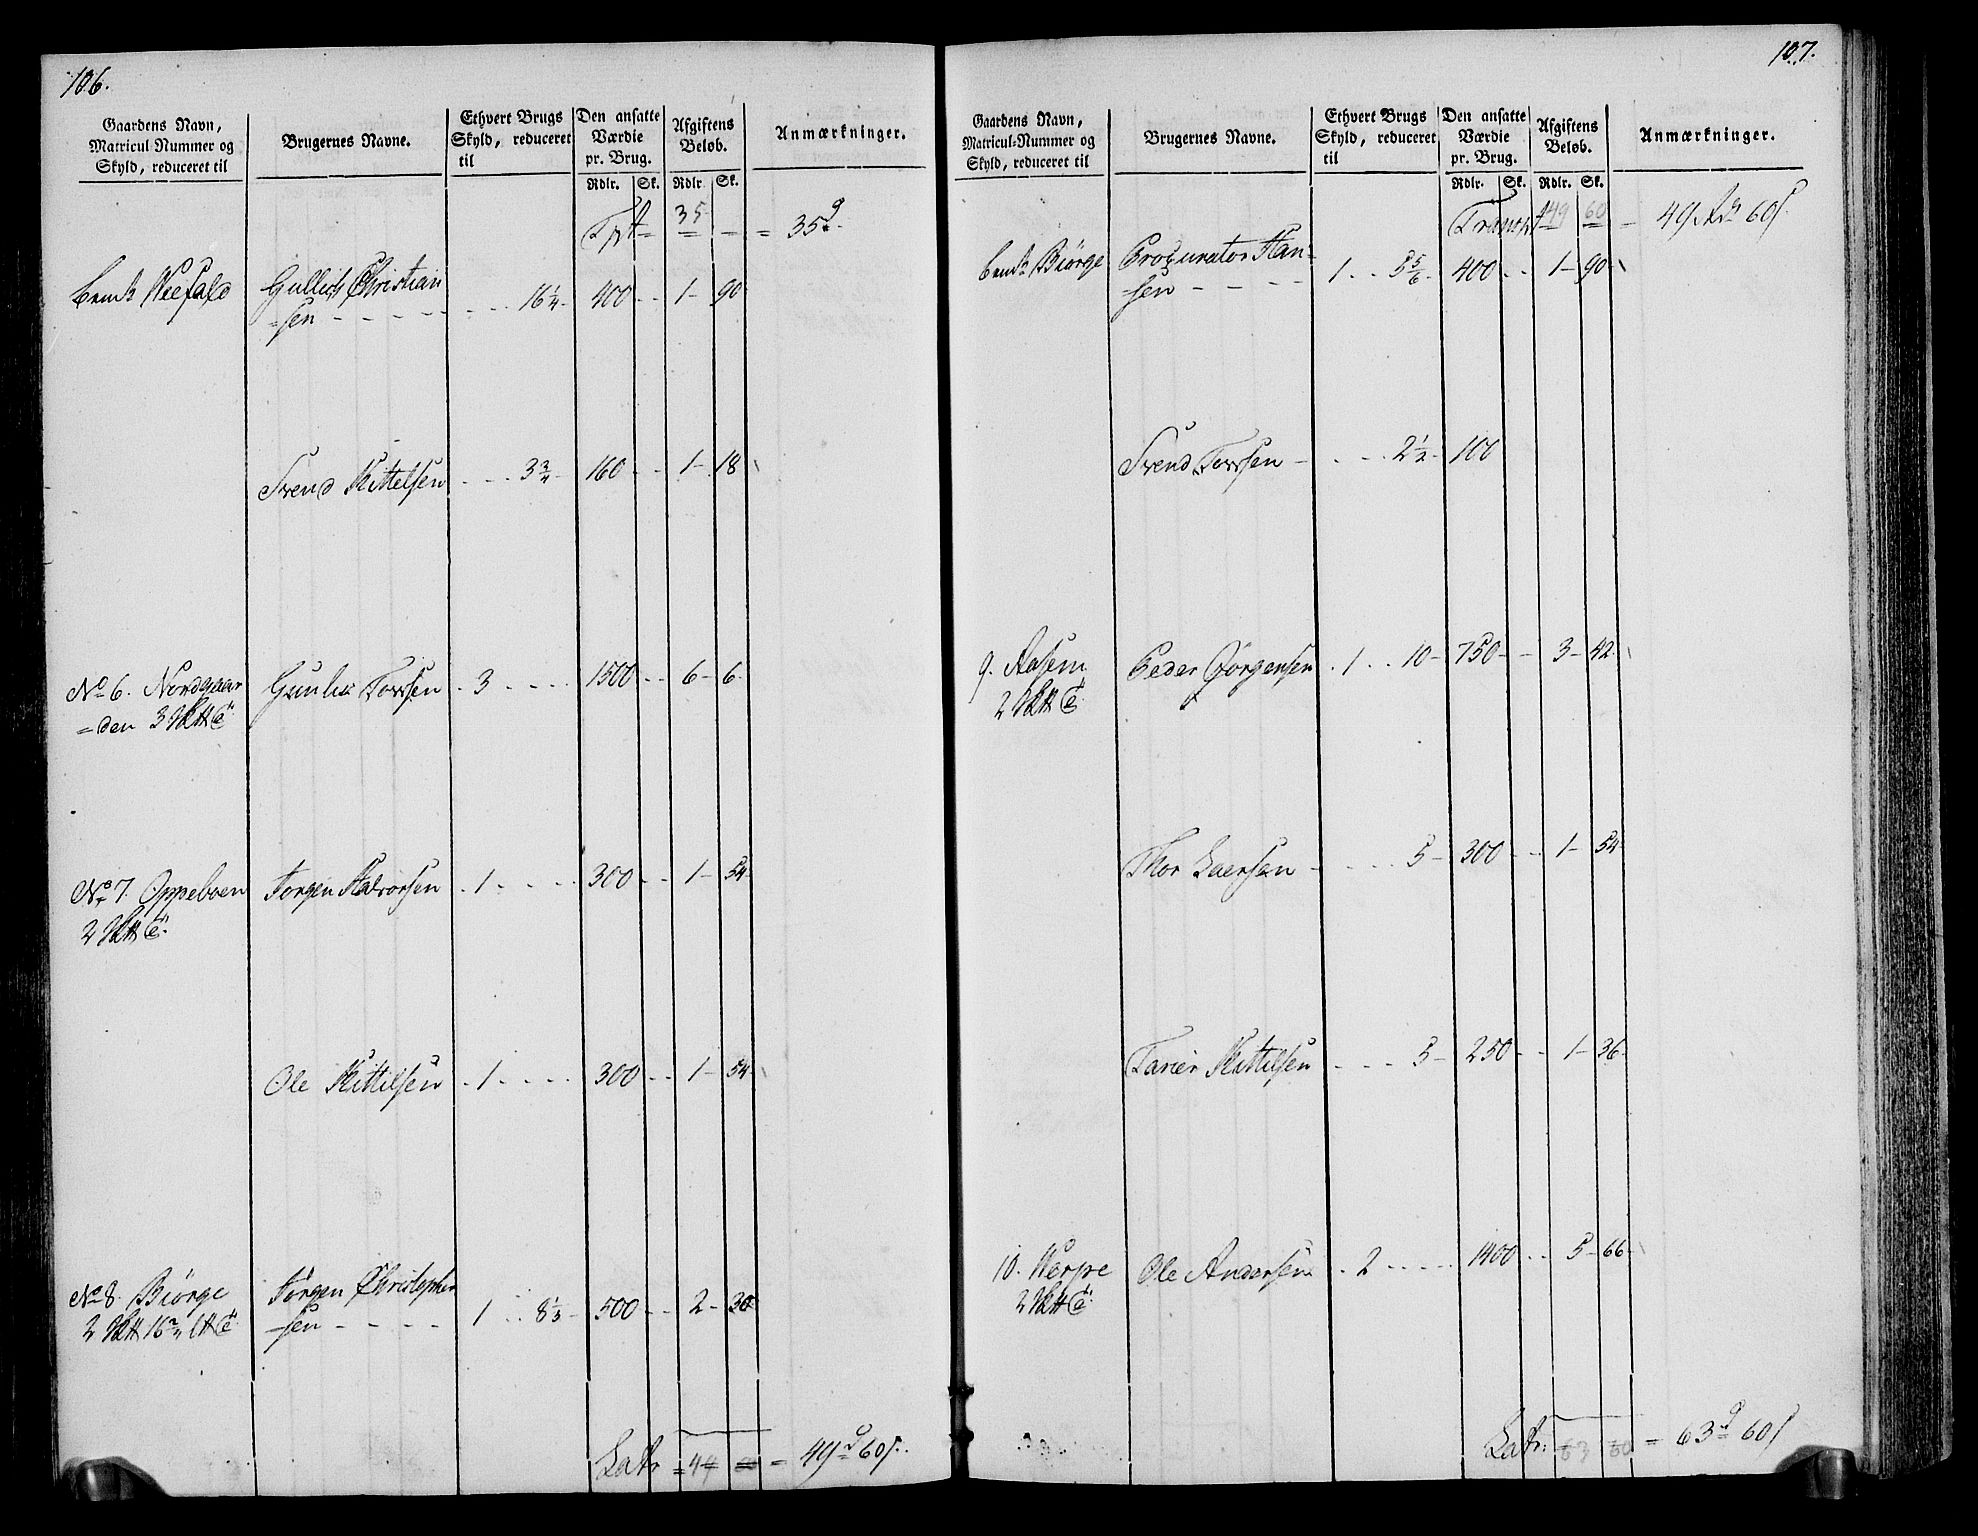 106.
Gaardens Navn, Matricul-Nummer og Skyld, reduceret til
Brugernes Navne.
Ethvert Brugs Skyld, reduceret til
Den ansatte Værdie pr. Brug.
Afgiftens Beløb.
Anmærkninger.
Rdlr. Sk. Rdlr. Sk.
35 = 35
Gullich Christian
=sen - - - - 16 1/4 - 400 - - 1 - 90
Svend Kittelsen - - - 3 3/4 160 - - 1 - 18
No 6. Nordgaar Gunder Torsen . 3 - - - - 1500 - - 6 - 6
=den 3
No 7. Oppeboen Jørgen Halvorsen . 1 - - - - 300 - - 1 - 54
2
Ole Kittilsen . 1 - - - - 300 - - 1 - 54
No 8. Biørge Jørgen Christopher
2 =sen - - - - 1 - - 8 1/3 - 500 - - 2 - 30
Latr = 49 60 = 49 60
107.
Gaardens Navn, Matricul-Nummer og Skyld, reduceret til
Brugernes Navne.
Ethvert Brugs Skyld, reduceret til
Den ansatte Værdie pr. Brug.
Afgiftens Beløb.
Anmærkninger.
Rdlr. Sk. Rdlr. Sk.
Transp 49 60 = 49 60
Biørge Procurator Han=
=sen - - - - 1 - - 5 5/6 - 400 - - 1 - 90
Svend Torsen - - - - 2 1/2 - 100
9. Aasem Peder Jørgensen . 1 . . 10 - 750 - - 3 - 42
2
Thor Laersen - - - - 5 - 300 - - 1 - 54
Tarier Kittilsen - - - 5 - 250 - - 1 - 36
10. Werpe Ole Andersen . 2 - - - - 1400 - - 5 - 66
2
Latr: 63 60 = 63 60